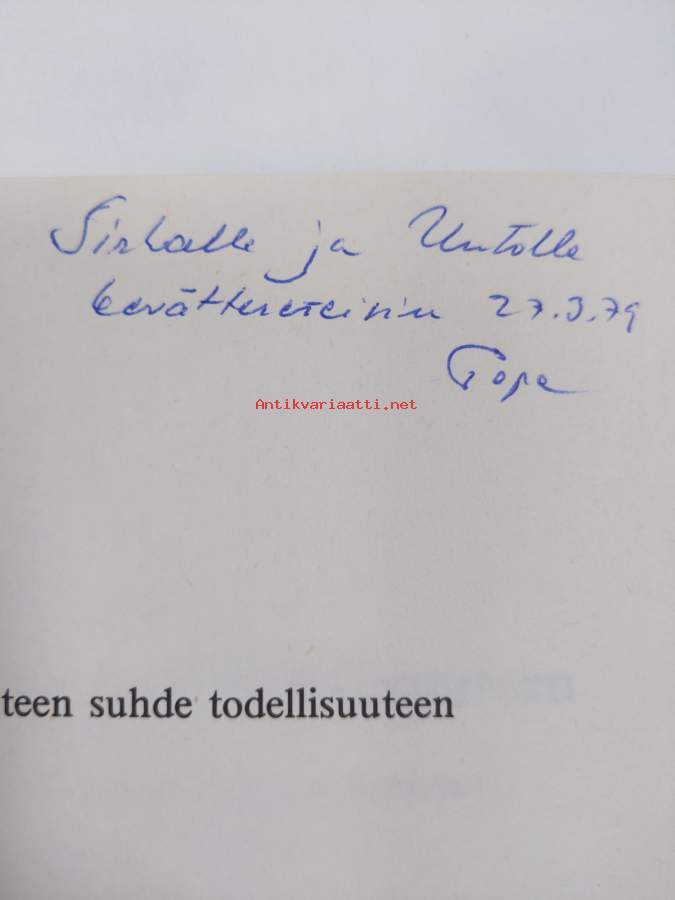 Sirkalle ja Untolle
kevätterveisin 27.3.79
Topa
Antikvariaatti.net
teen suhde todellisuuteen